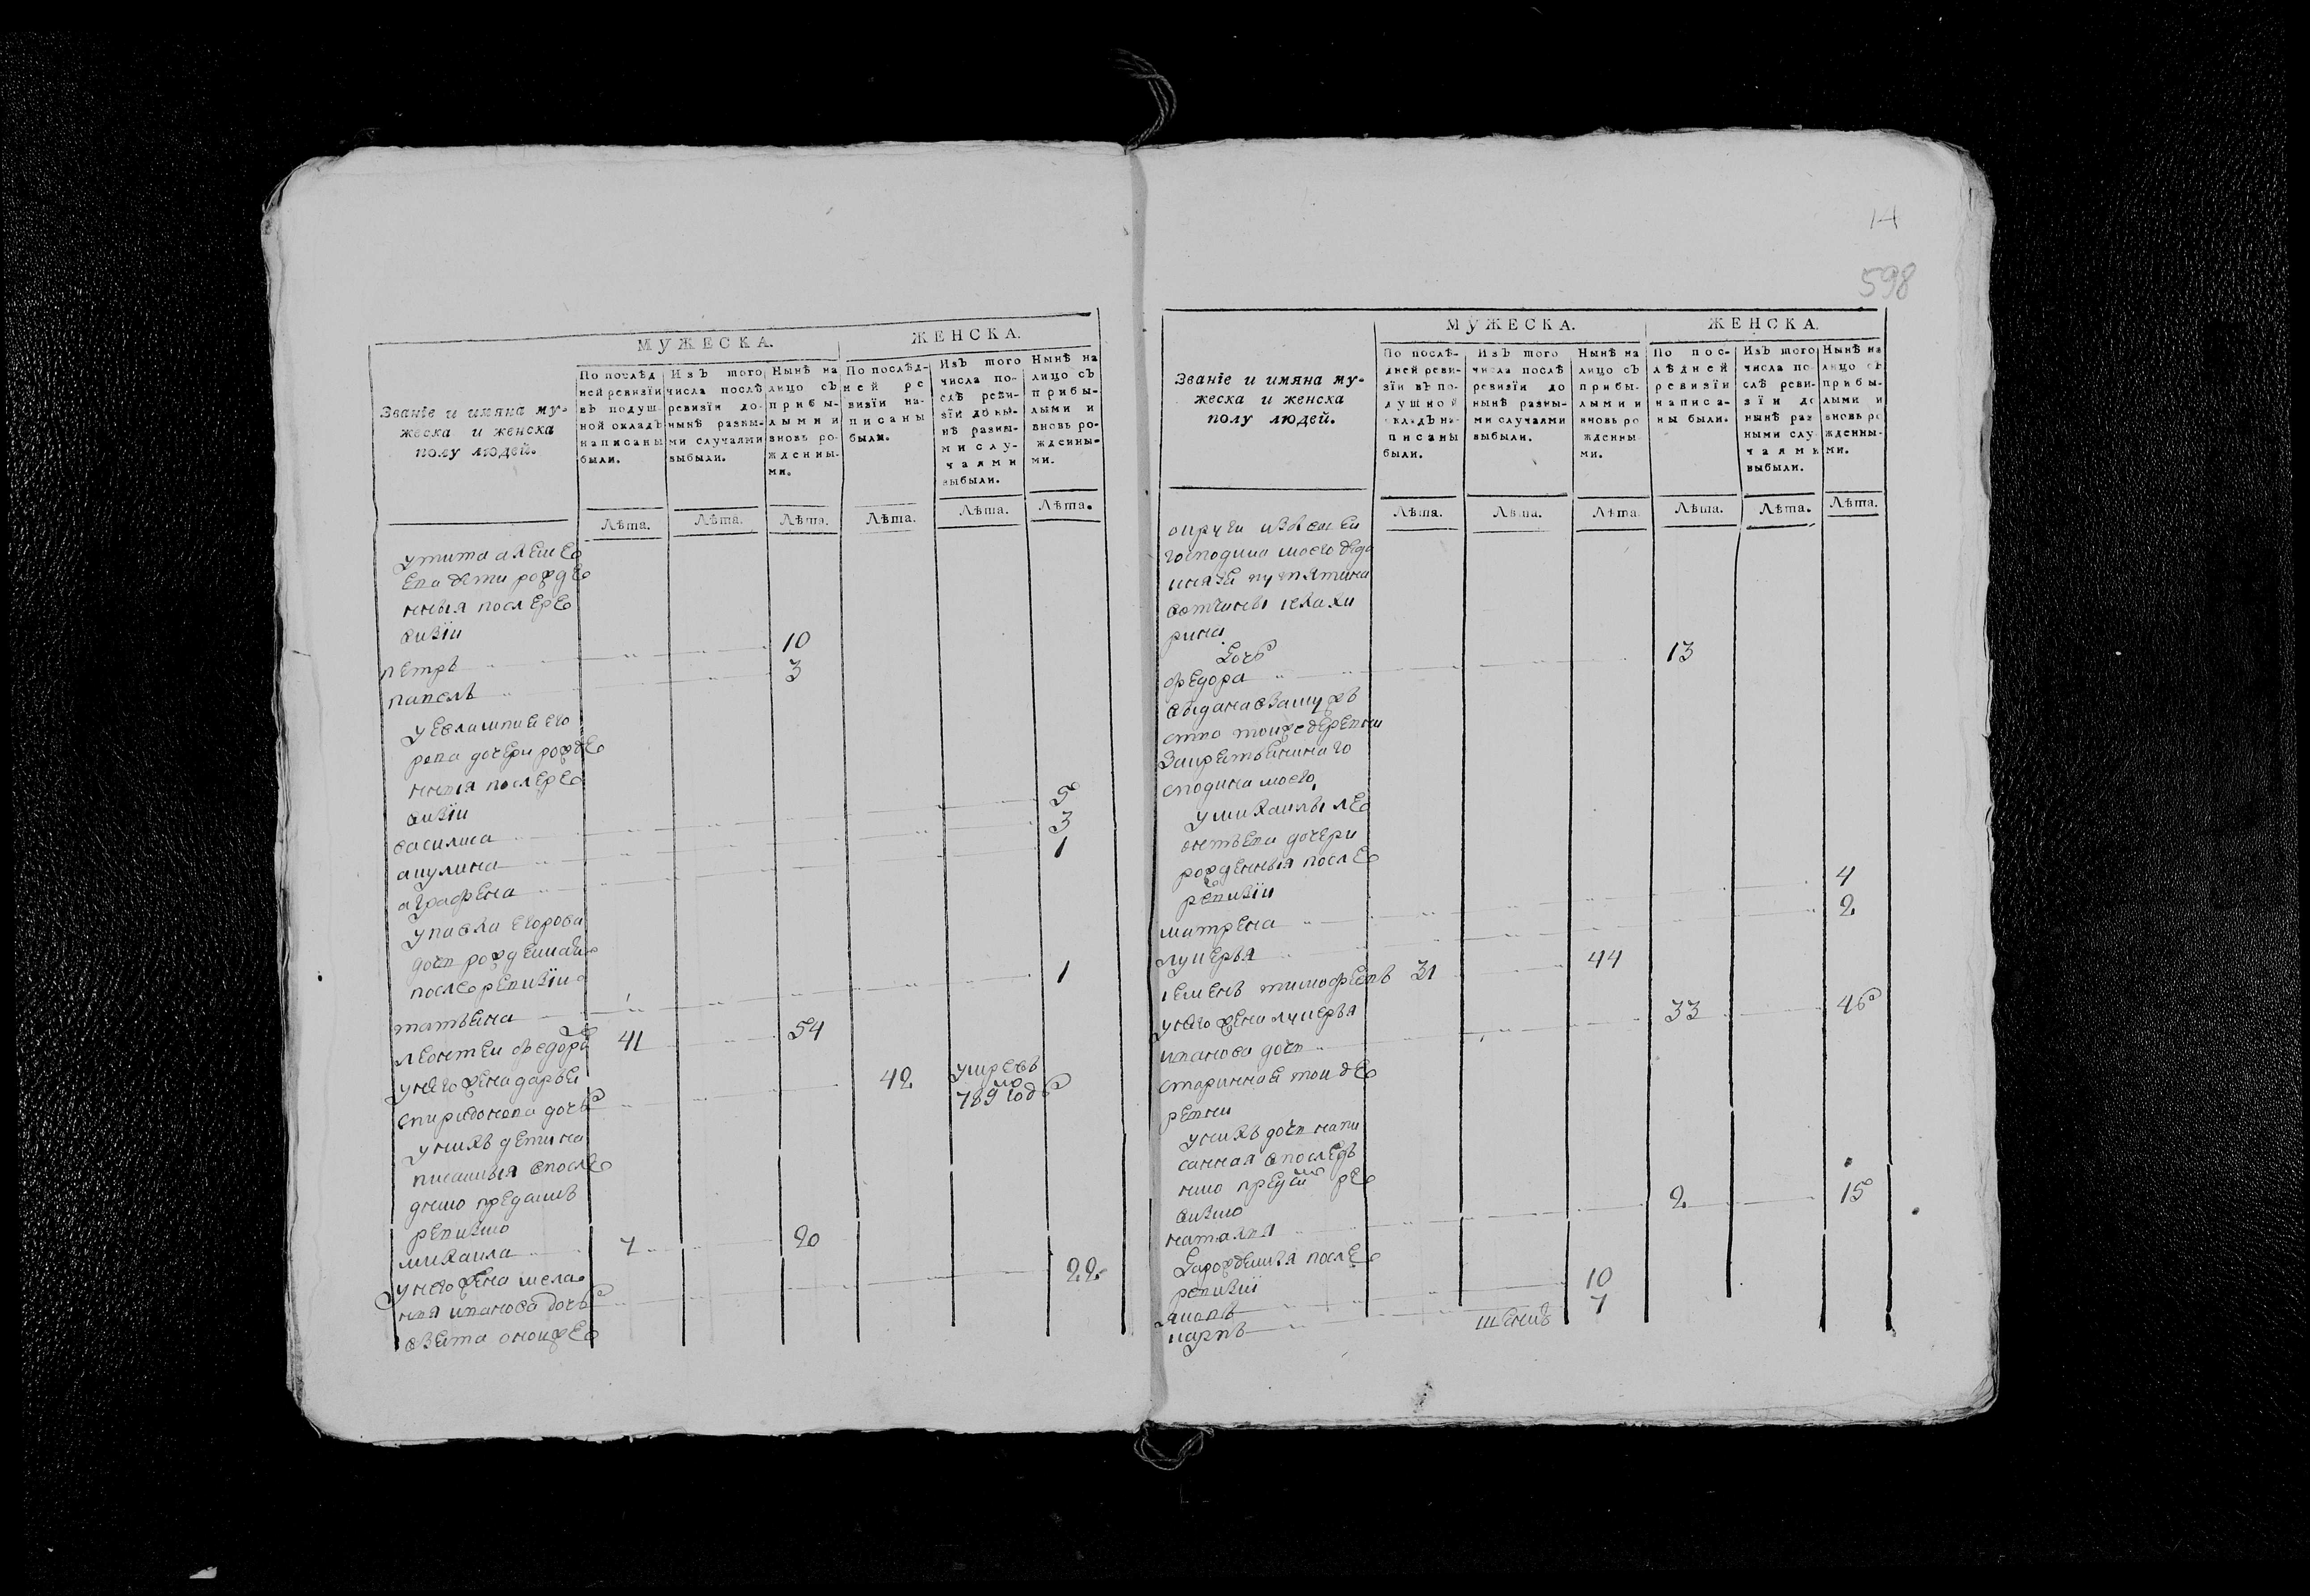 МУЖЕСКА.
ЖЕНСКА.
Званіе и имяна му-
жеска и женска
полу людей.
По послѣд
ней ревизіи
въ подуш-
ной окладъ
написаны
были.
Изъ того
числа послѣ
ревизіи до-
нынѣ разны-
ми случаями
выбыли.
Нынѣ на
лицо съ
прибы-
лыми и
вновь ро-
жденны-
ми.
По послѣд-
ней ре
визіи на-
писаны
были.
Изъ того
числа по-
слѣ реви-
зіи до ны-
нѣ разны-
ми слу-
чаями
выбыли.
Нынѣ на
лицо съ
прибы-
лыми и
вновь ро-
жденны-
ми.
Лѣта. Лѣта. Лѣта. Лѣта. Лѣта. Лѣта.
утита алеше
ева дети рожде
нныя после ре
визіи
петръ 10
павелъ 3
уевлампия его
рова дочери рожде
нныя после ре
визіи
василиса 5
акулина 3
аграфена 1
упавла егорова
дочь рожденная
после ревизіи
татьяна 1
леонтеи федоро 41 54
унего жена дарья 42 умре въ
спиридонова дочь 789 году
унихъ дети на
писанныя впосле
днюю пред
ревизию
михаила 7 20
унего жена мела 22
ния иванова дочь
взята оноиже
14
598
МУЖЕСКА.
ЖЕНСКА.
Званіе и имяна му-
жеска и женска
полу людей.
По послѣ-
дней реви-
зіи въ по-
душной
окладъ на-
писаны
были.
Изъ того
числа послѣ
ревизіи до
нынѣ разны-
ми случаями
выбыли.
Нынѣ на
лицо съ
прибы-
лыми и
вновь ро
жденны
ми.
По пос-
лѣдней
ревизіи
написа-
ны были.
Изъ того
числа по
слѣ реви-
зіи до
нынѣ раз
ными слу
чаями
выбыли.
Нынѣ на
лицо съ
прибы-
лыми и
вновь ро
жденны-
ми.
Лѣта. Лѣта. Лѣта. Лѣта. Лѣта. Лѣта.
округи
господина моего деда
князя путятина
вотчины
рина
дочь
федора 13
выдана взамужъ
тоиже деревни
господина моего
умихаилы ле
онтьева дочери
рожденныя после
ревизіи
матрена 4
лукерья 2
семенъ тимофеевъ 31 44
унего жена лукерья 33 46
иванова дочь
старинная тои де
ревни
унихъ дочь напи
санная впоследъ
нюю пред ре
визию
наталья 2 15
да рожденыя после
ревизіи
яковъ 10
карпъ 7